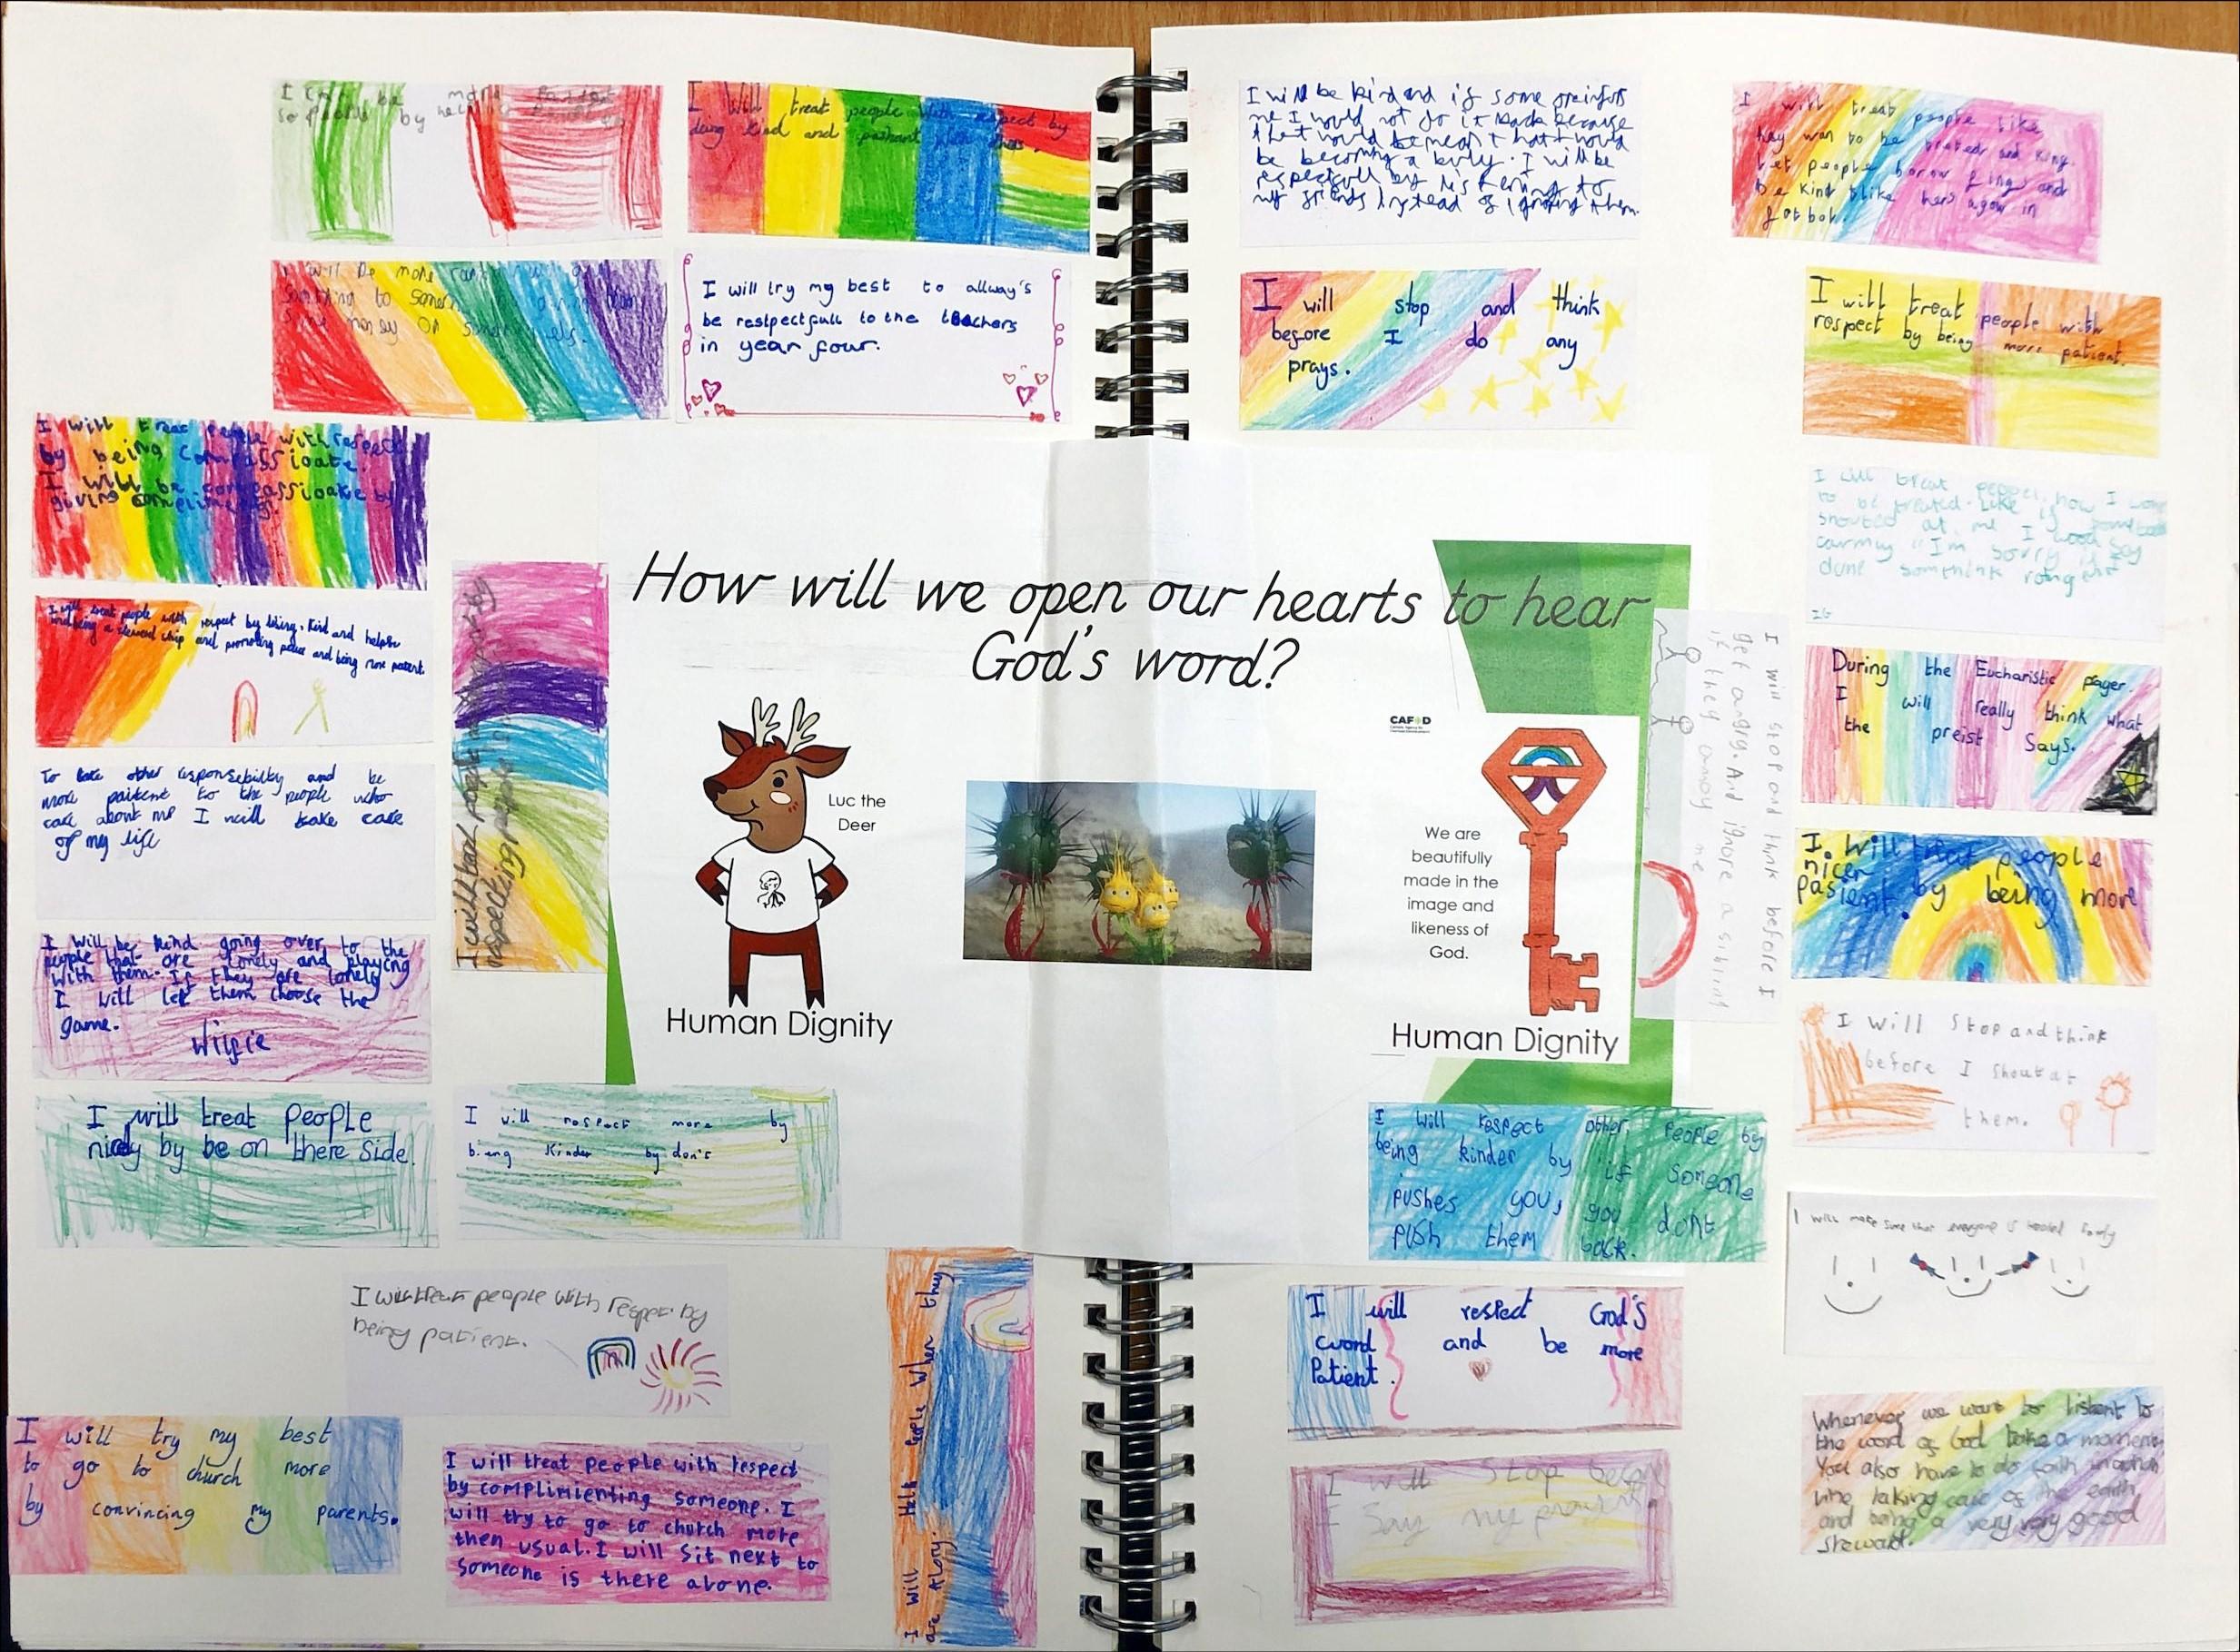 How will we open our hearts to hear
God's word?
Luc the
Deer
Human Dignity
CAFOD
We are
beautifully
made in the
image and
likeness of
God.
Human Dignity
I will treat people with respect by
being kind and
I will try my best to allway's
be restpectfull to the teachers
in year four.
I will treat people with respect
by being compassioate.
I will be compassioate by
giving
I will treat people with respect by being kind and
and being a and promoting peace and being more patient.
To other responsebility and be
more paitent to the people who
care about me I will take care
of my life
I will be kind going over to the
people that are lonely and playing
with them. If they are lonely
I will let them choose the
game.
Wilfie
I will treat people
by be on there side.
I will respect more by
being kinder by
I will treat people with respect by
being patient.
I will try my best
to go to church more
by convincing my parents.
I will treat people with respect
by complimienting someone. I
will try to go to church more
then usual. I will sit next to
someone is there alone.
I will Help People When they
are
I will be kind and if some
me I would not do it back because
that would be mean
be becoming a bully. I will be
respectfull by listening to
my friends instead of ignoring them.
I will treat people like
be
let people and
be kind
I will stop and think
before I do any
prays.
I will treat people with
respect by being more patient.
I will treat how I
to be treated. Like if
shouted at me I wood say
"I'm sorry if I
done somthink
During the Eucharistic
I will really think what
the preist says.
I will stop and think before I
get angry. And ignore a sibling
if they annoy me
I will treat people
nicer by being more
pasient.
I will Stop and think
before I shout at
them.
I will respect other people by
being kinder by if someone
pushes you, you dont
push them back.
I will make sure that everyone is
I will respect God's
word and be more
Patient.
I will Stop
I Say my
Whenever we want to listent to
the word of God take a moment
You also have to do faith in action
like taking care of the earth
and being a very very good
steward.